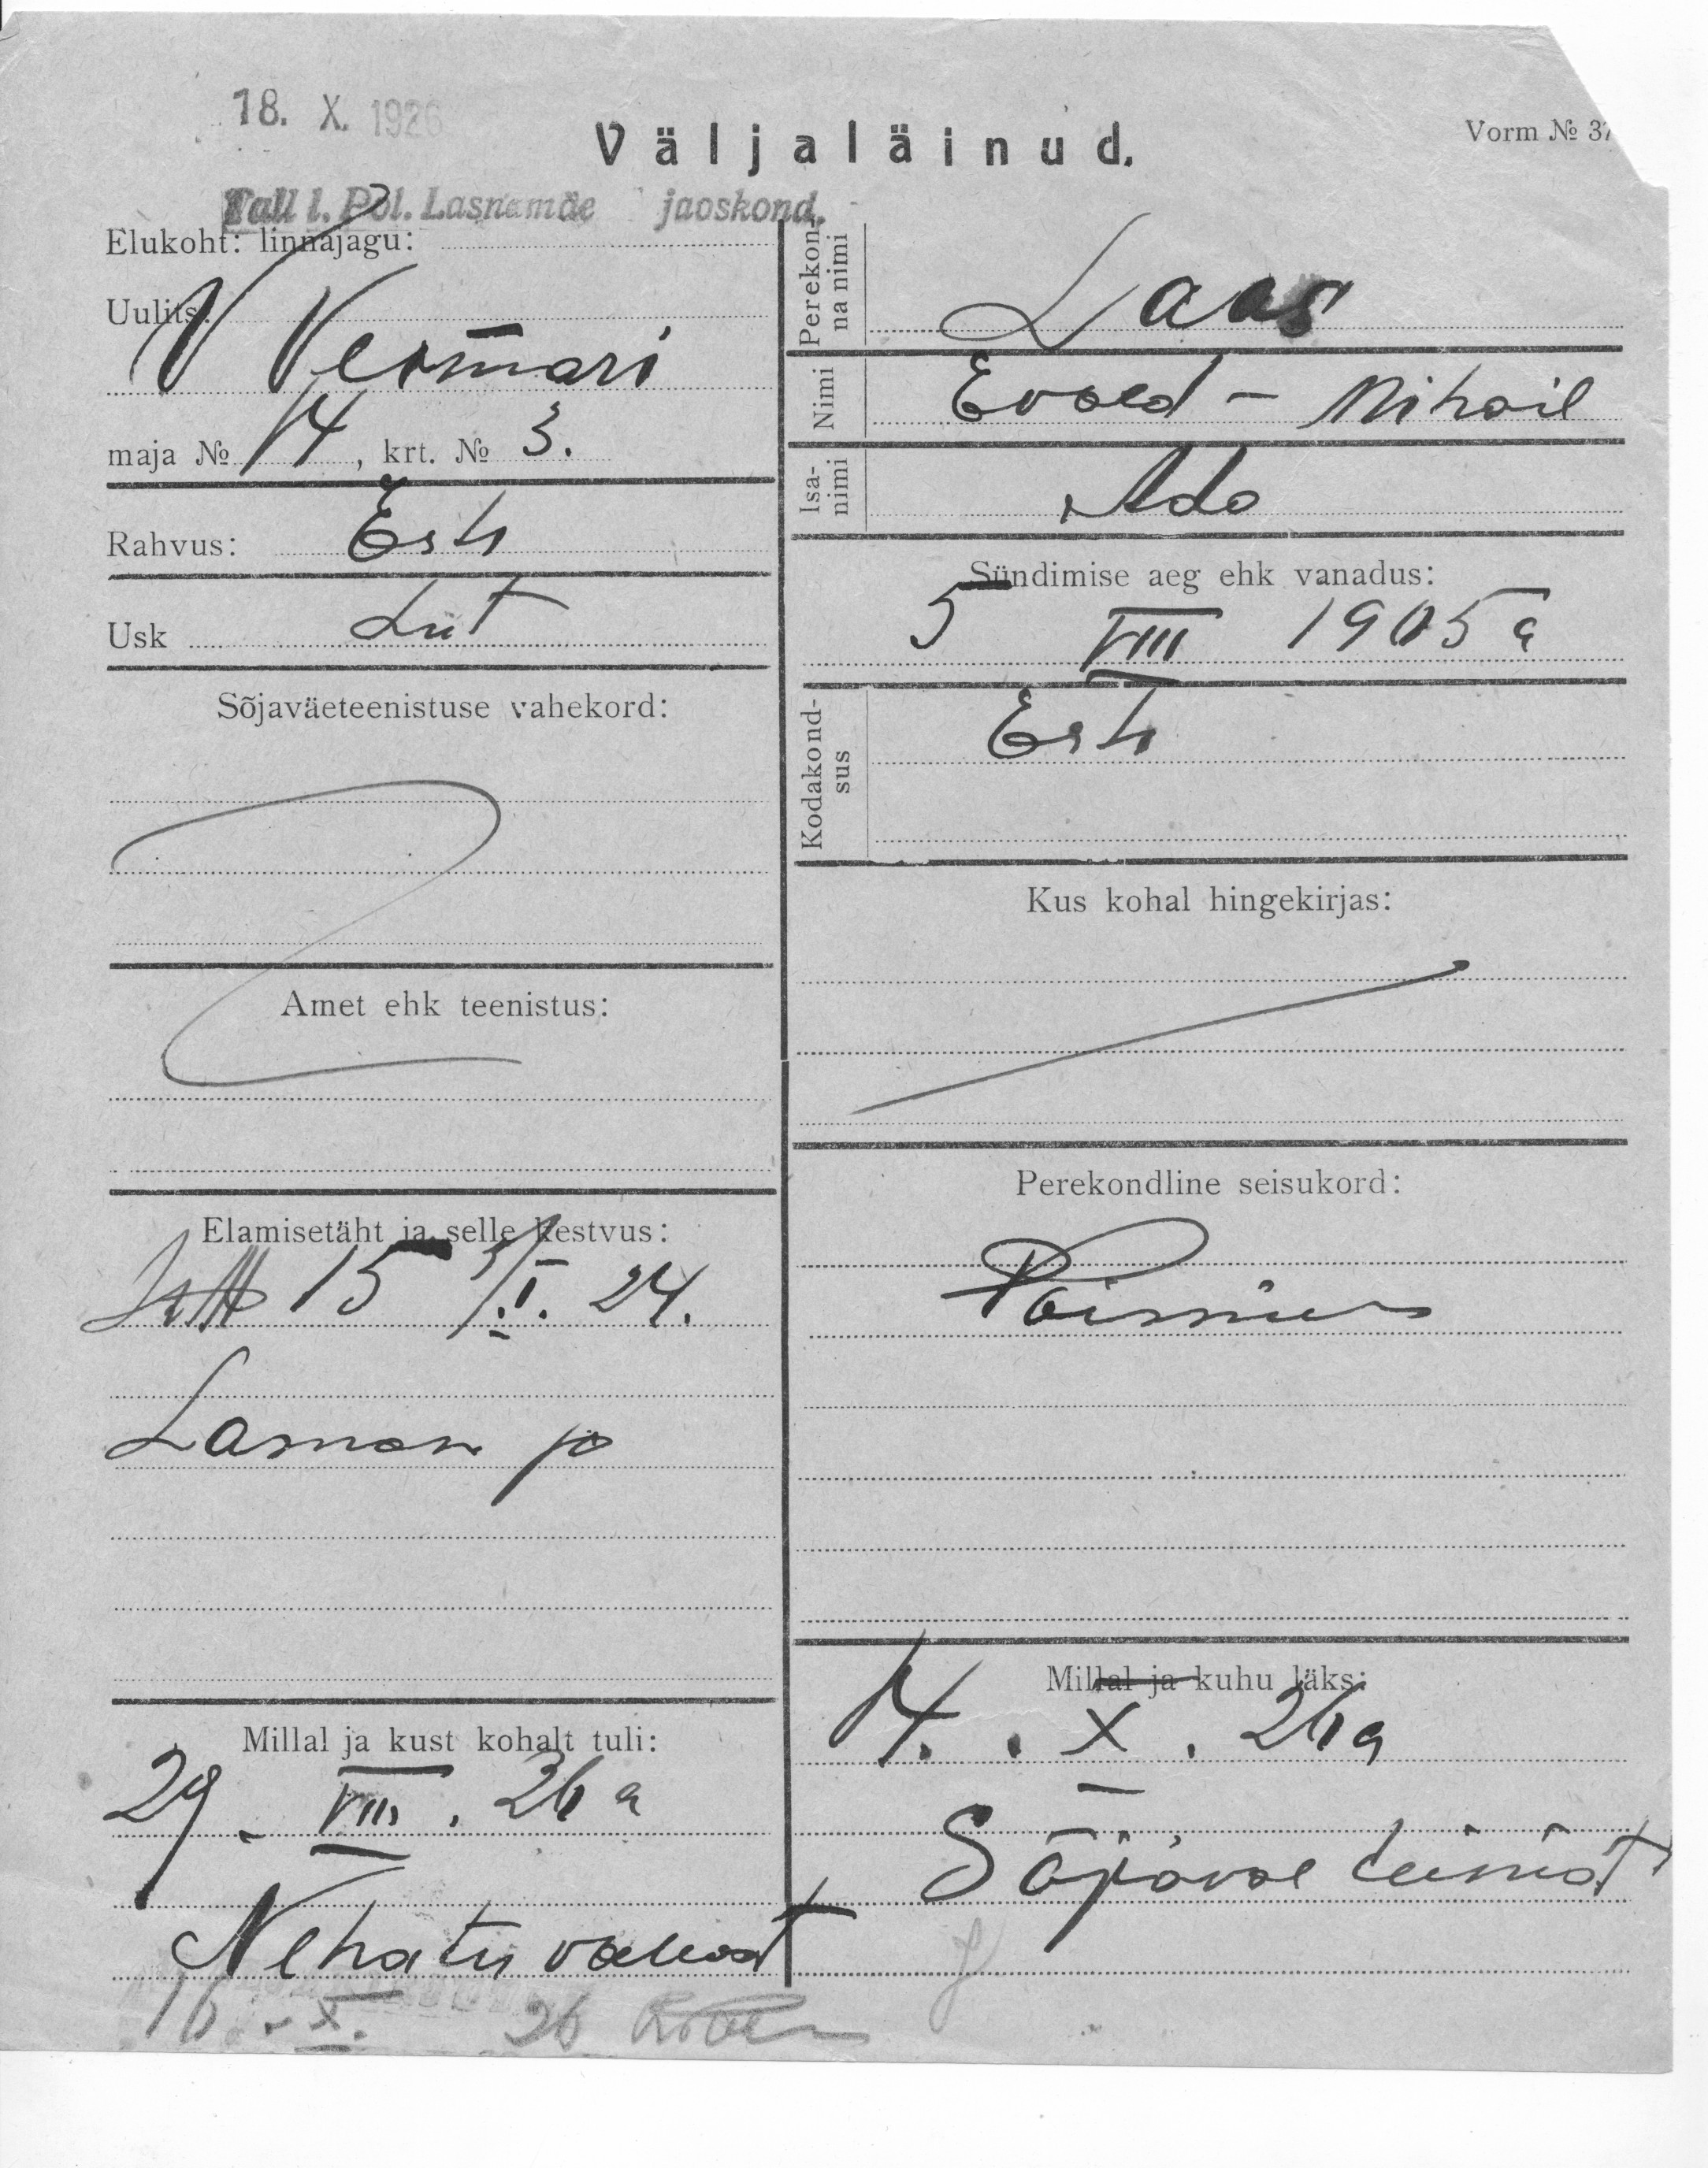 18. X. 1926
Väljaläinud.
Vorm № 37
Tall l. Pol. Lasnamäe jaoskond.
Elukoht: linnajagu:
Uulits:
V Neomari
maja № 14, krt. № 3.
Rahvus: Esti
Usk Lut
Sõjaväeteenistuse vahekord:
Amet ehk teenistus:
Elamisetäht ja selle kestvus:
15 5/I. 24.
Lasnam jo
Millal ja kust kohalt tuli:
29. VIII. 26 a
Nehatu vallast
16. X. 26
Perekonna nimi Laas
Nimi Evald - Mihail
Isanimi Ado
Sündimise aeg ehk vanadus:
5 VIII 1905 a
Kodakondsus Esti
Kus kohal hingekirjas:
Perekondline seisukord:
Poismees
Millal ja kuhu läks:
14. X. 26 a
Sõjaväe teenist